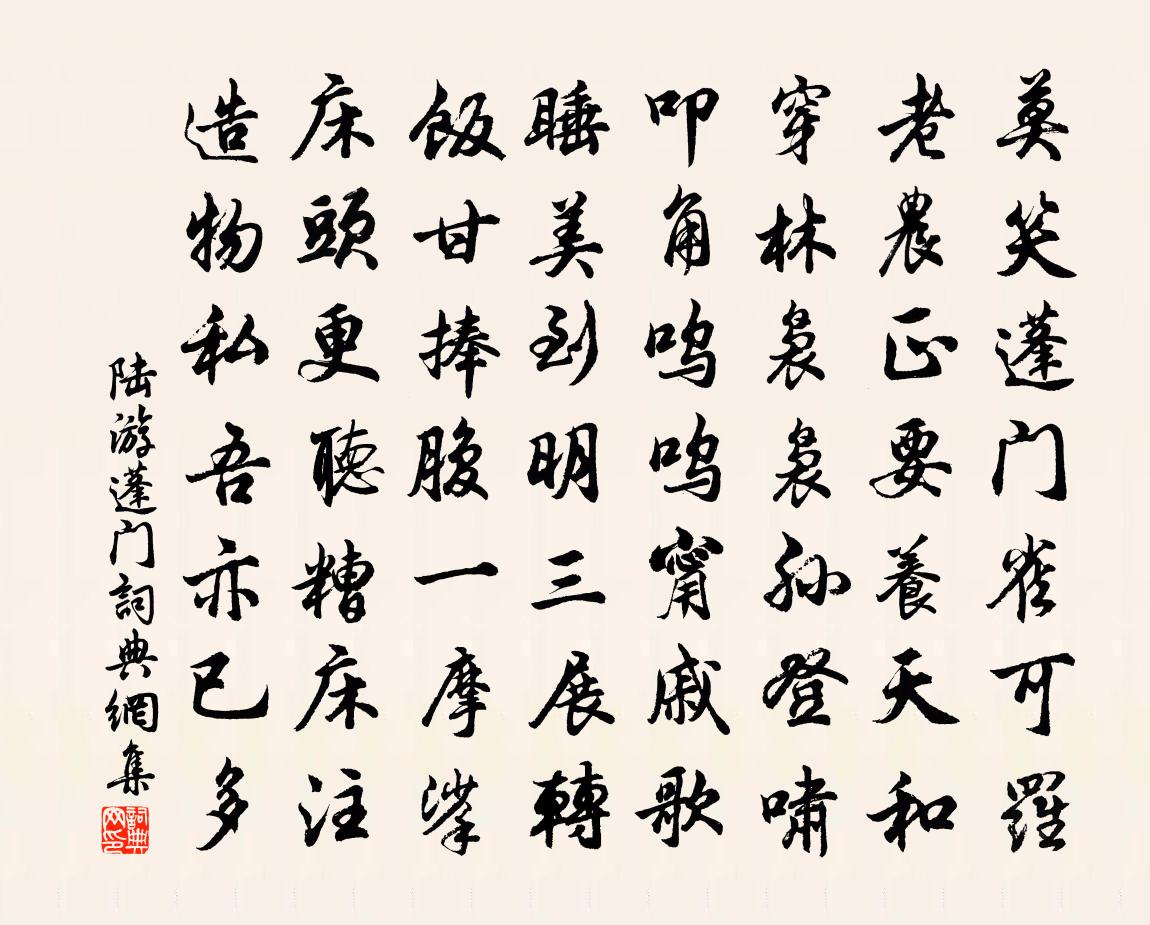 莫笑蓬门雀可羅
老農正要養天和
穿林裊裊孫登嘯
叩角鳴鳴甯戚歌
睡美到明三展轉
飯甘捧腹一摩挲
床頭更聽糟床注
造物私吾亦已多
陆游蓬门詞典網集
詞典网印